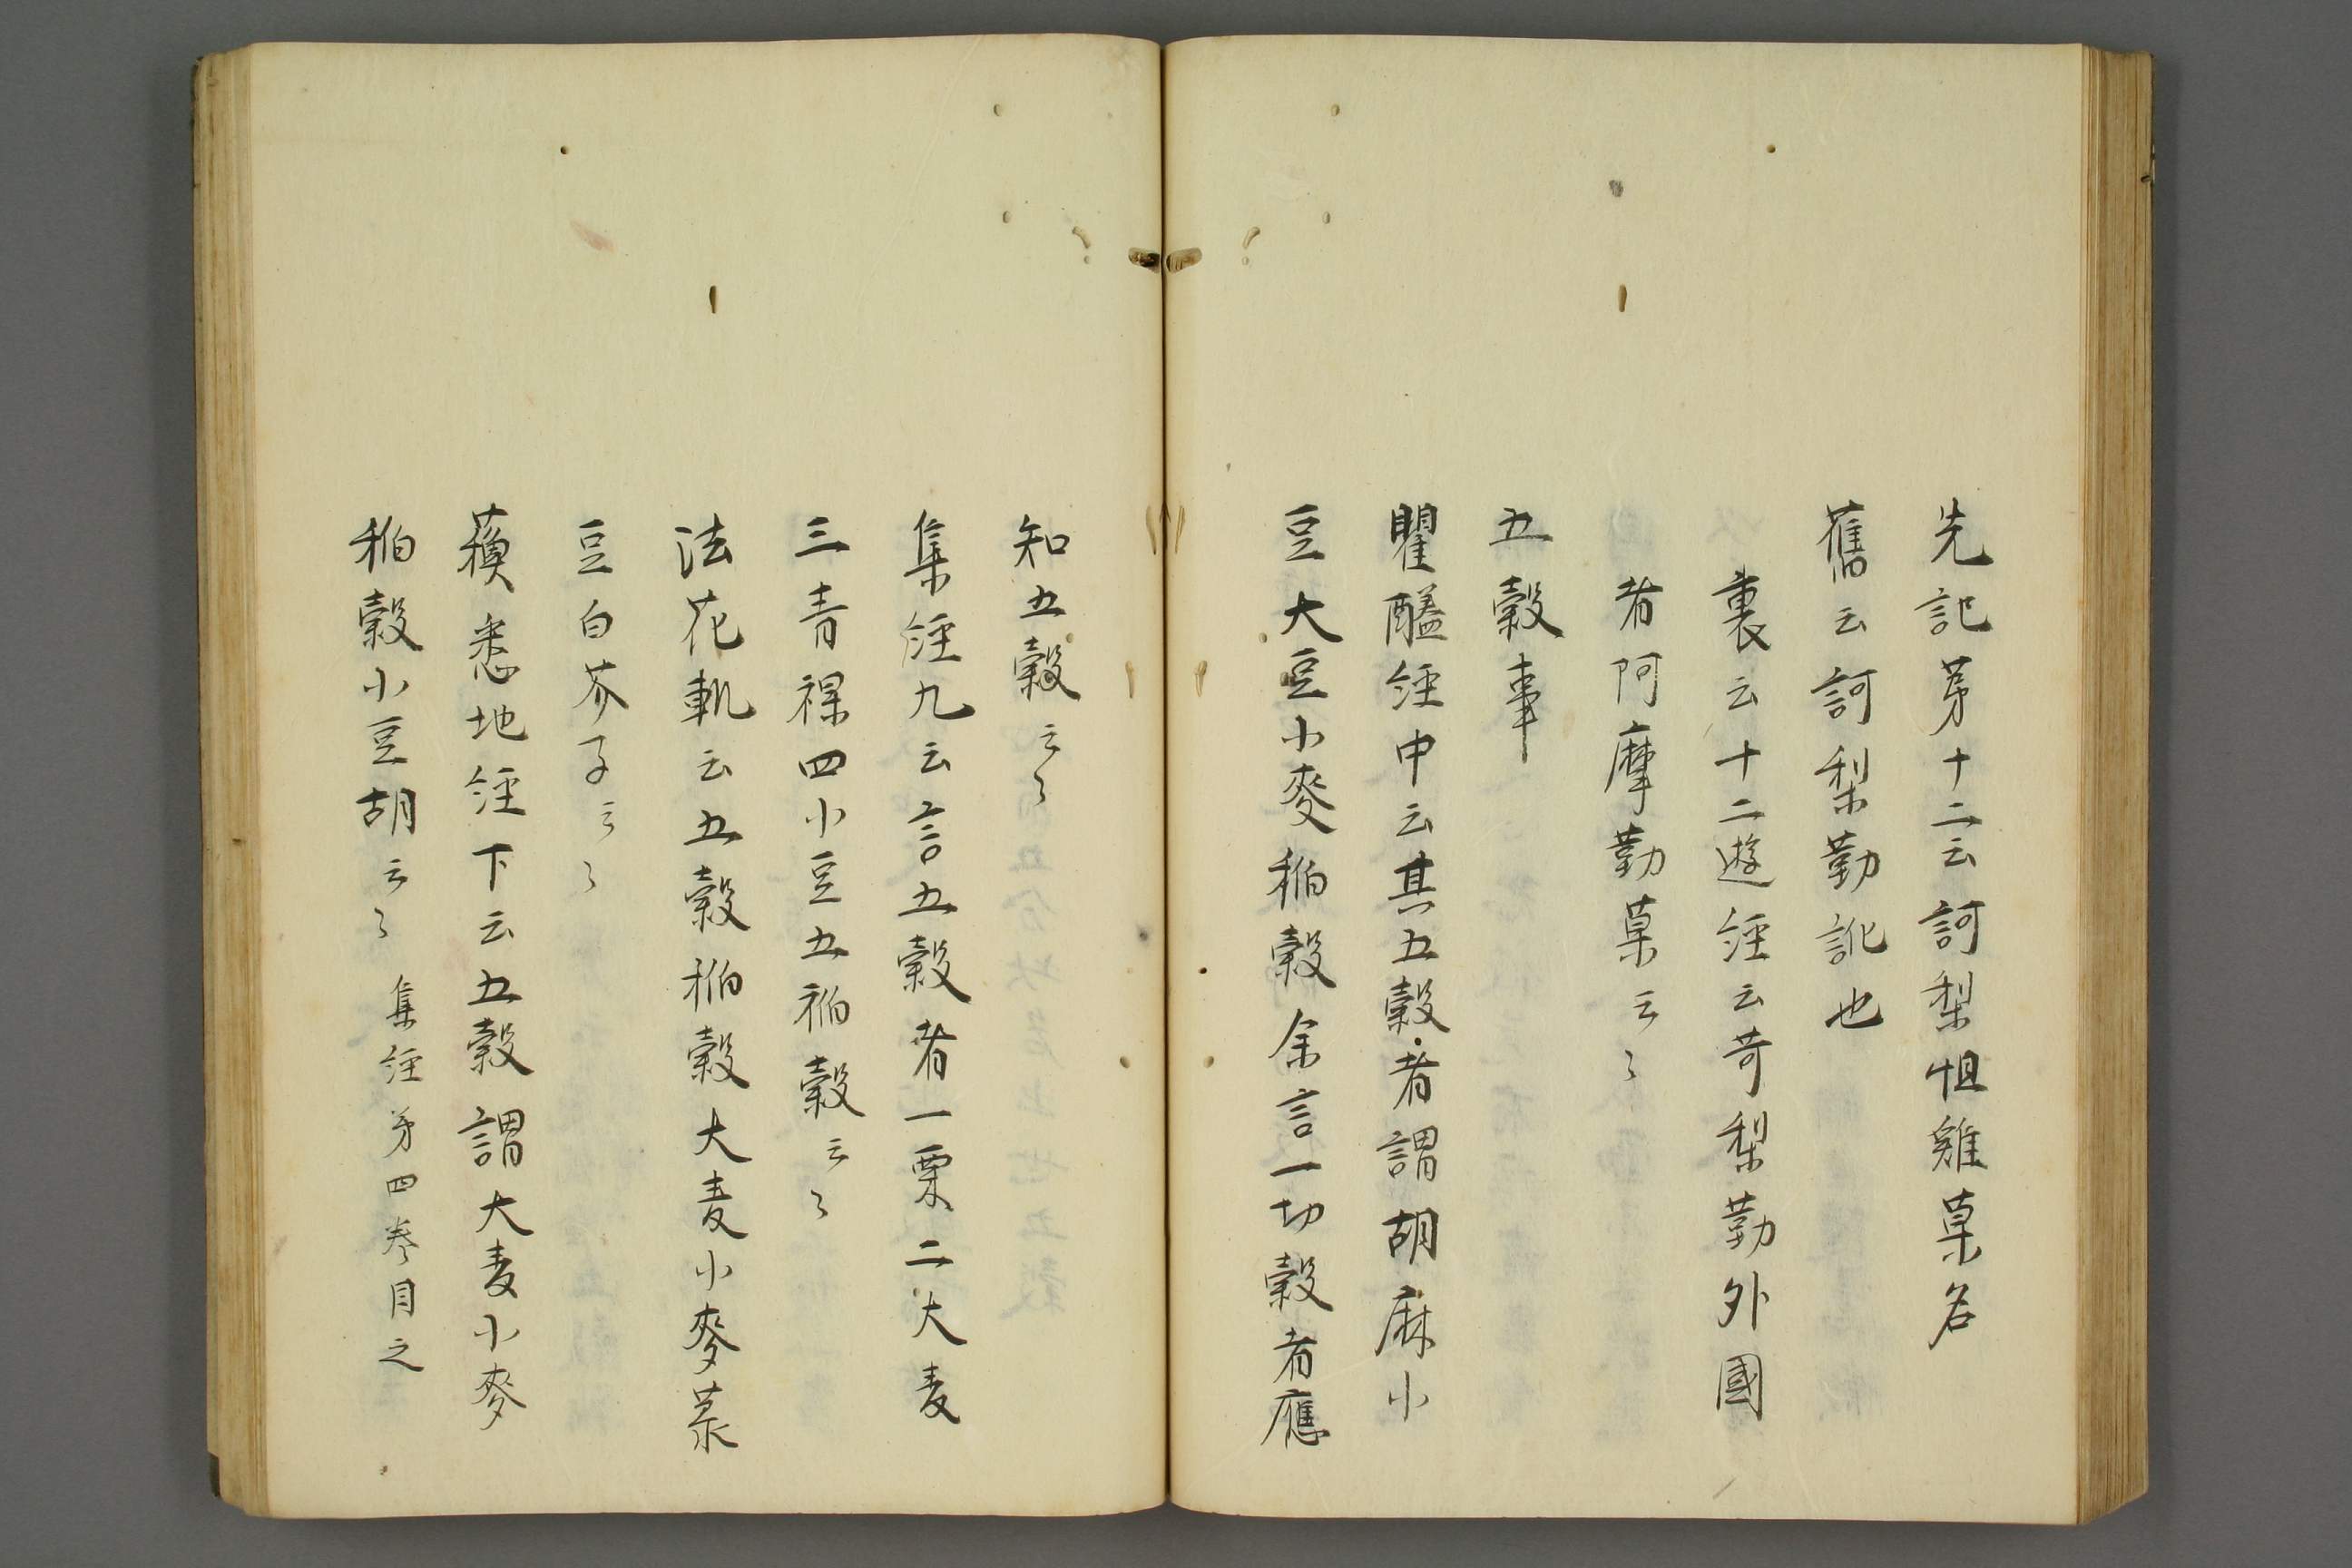 先記第十二云訶梨怛雞菓名
舊云訶梨勒訛也
裏云十二遊経云苛梨勒外國
者阿摩勒菓云々
五穀事
瞿醯経中云其五穀者謂胡麻小
豆大豆小麥稲穀余言一切穀者應
知五穀云々
集経九云言五穀者一粟二大麦
三青稞四小豆五稲穀云々
法花軌云五穀稲穀大麦小麥菉
豆白芥子云々
蘓悉地経下云五穀謂大麦小麥
稲穀小豆胡云々 集経第四巻目之